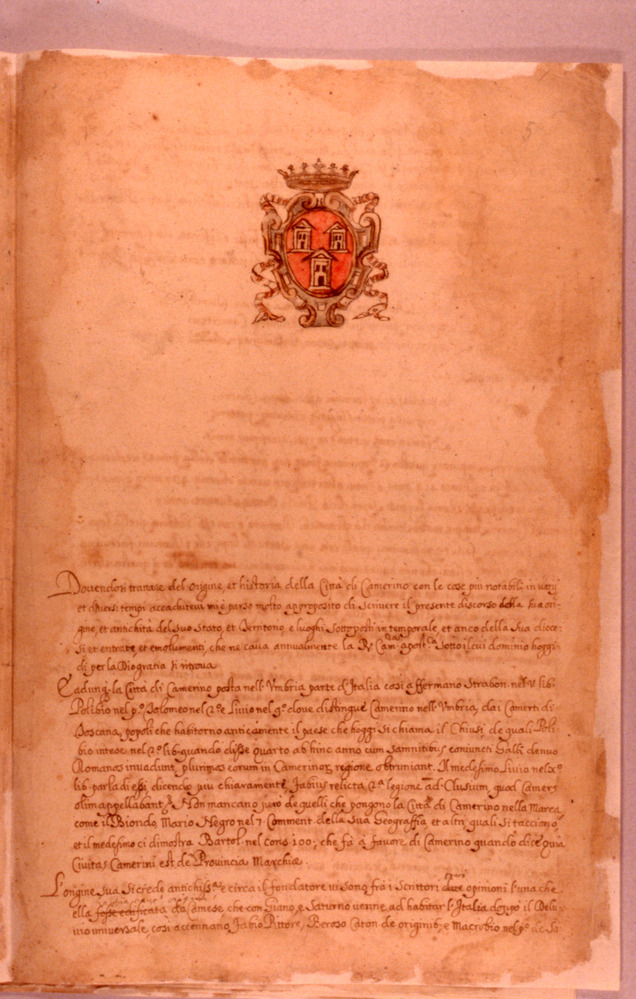 5
Dovendosi trattare del origine, et historia della Città di Camerino con le cose più notabili in varij
et diversi tempi accadutevi mi è parso molto approposito di scrivere il presente discorso della sua ori-
gine, et antichità del suo stato, et Territorio, e luoghi sottoposti in temporale, et anco della sua dioce-
si et entrate, et emolumenti, che ne cava annualmente la R. Cam. Apost. sotto il cui dominio hoggi-
di per la Dio gratia si ritrova
la Città di Camerino posta nell'Umbria parte d'Italia così affermano Strabon. nel V. lib.
Polibio nel p.º Tolomeo nel 2.º e Livio nel 9.º dove distingue Camerino nell'Umbria, dai Camerti di
Toscana, popoli che habitorno anticamente il paese che hoggi si chiama il Chiusi, de quali Poli-
bio intese nel 2.º lib. quando disse quarto ab hinc anno cum Samnitibus coniuncti Galli denuo
Romanos invadunt, plurimos eorum in Camerinor. regione obtruniant. Il medesimo Livio nel x.º
lib. parla di essi, dicendo più chiaramente, Fabius relicta 2.ª legione ad Clusum, quod Camers
olim appellabant. Non mancano però de quelli che pongono la Città di Camerino nella Marca
come il Biondo, Mario Negro nel 7. Comment. della sua Geografia, et altri quali si tacciono
et il medesimo ci dimostra Bartol. nel cons. 100; che fà à favore di Camerino quando dice quia
Civitas Camerini est de Provincia Marchiæ.
L'origine sua si crede antichiss.ª e circa il fondatore vi sono frà i Scrittori due opinioni l'una che
ella fosse edificata da Camese che con Giano, e Saturno venne ad habitar l'Italia doppo il Dilu-
vio universale, così accennano Fabio Pittore, Beroso Caton. de originib. e Macrobio nel p.º de Sa-